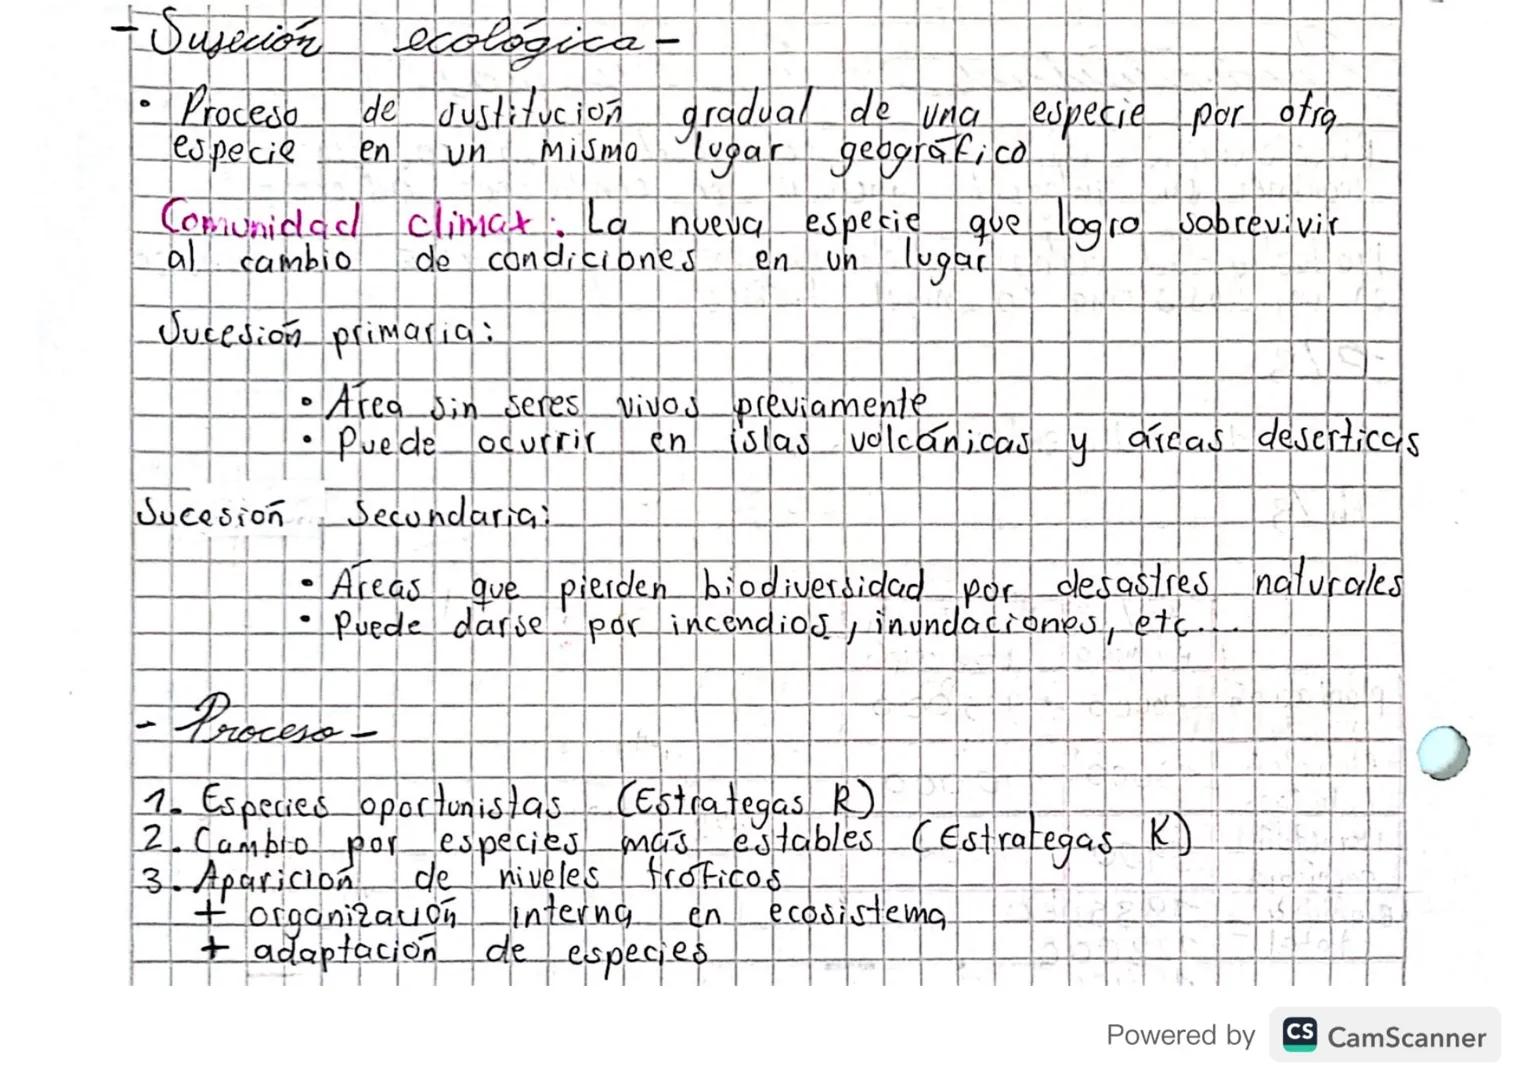 - Suseción ecológica -
• Proceso de sustitución gradual de una especie por otra
especie en un mismo lugar geográfico
Comunidad climax: La nueva especie que logro sobrevivir
al cambio de condiciones en un lugar
Sucesión primaria:
• Área sin seres vivos previamente
• Puede ocurrir en islas volcánicas y áreas deserticas
Sucesión Secundaria:
• Áreas que pierden biodiversidad por desastres naturales
• Puede darse por incendios, inundaciones, etc...
- Proceso -
1. Especies oportunistas (Estrategas R)
2. Cambio por especies más estables (Estrategas K)
3. Aparición de niveles tróficos
+ organización interna en ecosistema
+ adaptación de especies
Powered by CS CamScanner